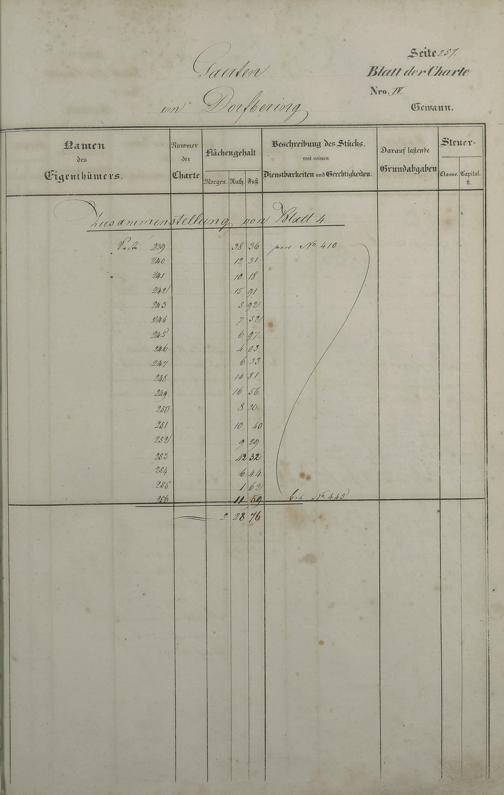 Seite 257
Gaerten
Blatt der Charte
Nro. IV
im Dorfbering
Gewann.
Namen des Eigenthümers.
Nummer der Charte
Flächengehalt
Morgen Ruth. Fuß
Beschreibung des Stücks.
mit seinen
Dienstbarkeiten und Gerechtigkeiten.
Darauf lastende Grundabgaben
Steuer-
Classe. Capital. fl.
Zusammenstellung von Blatt 4
239 38 36 No 410
240 12 31
241 10 18
242 15 91
243 5 92
244 7 52
245 6 97
246 4 03
247 6 33
248 14 81
249 16 56
250 8 20
251 10 40
252 9 29
253 42 32
254 6 44
255 1 62
256 11 59 bis No 443
2 28 76